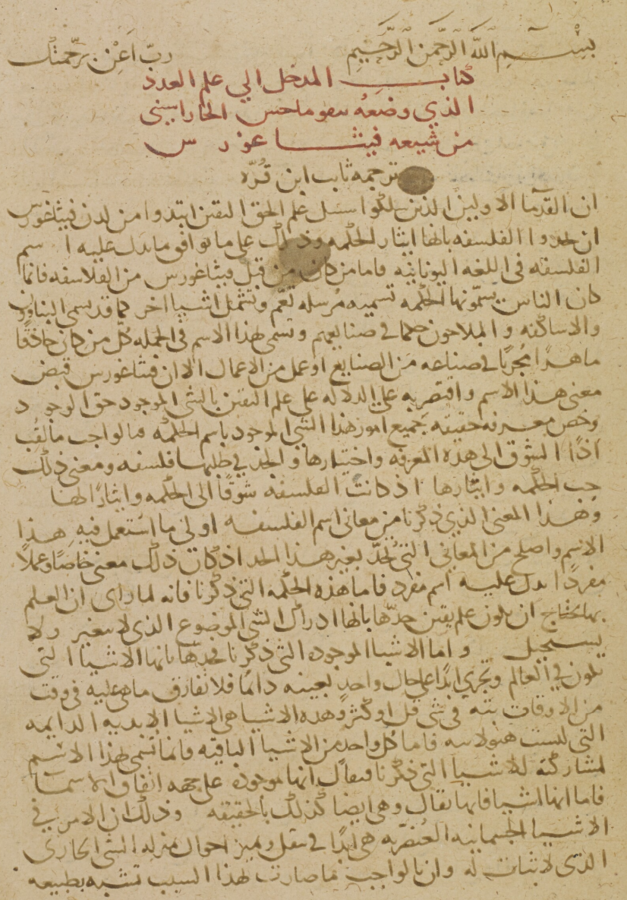 بسم الله الرحمن الرحيم رب اعن برحمتك
كتاب المدخل الي علم العدد
الذي وضعه نيقوماخس الجاراسيني
من شيعه فيثاغورس
ترجمه ثابت ابن قره
ان القدما الاولين الذين سلكوا سبيل علم الحق اليقين ابتدوا من لدن فيثاغورس
ان يحدوا الفلسفه بانها ايثار الحكمه وذلك علي ما يوافق ما يدل عليه اسم
الفلسفه في اللغه اليونانيه فاما من كان من قبل فيثاغورس من الفلاسفه فانما
كان الناس يسمونها الحكمه تسميه مرسله تعم وتشمل اشيا اخر كما قد يسمي البناوون
والاساكفه والملاحون حكما في صنايعهم وتسمي بهذا الاسم في الجمله كل من كان حاذقا
ماهرا مجربا في صناعه من الصنايع او عمل من الاعمال الا ان فيثاغورس قبض
معني هذا الاسم واقتصر به علي الدلاله علي علم اليقين بالشي الموجود حق الوجود
وخص معرفه حقيقه جميع امور هذا الشي الموجود باسم الحكمه فبالواجب ما لقب
اذا الشوق الي هذه المعرفه واختيارها والجد في طلبها فلسفه ومعني ذلك
حب الحكمه وايثارها اذ كانت الفلسفه شوقا الي الحكمه وايثارا لها
وهذا المعني الذي ذكرنا من معاني اسم الفلسفه اولي ما استعمل فيه هذا
الاسم واصلح من المعاني التي تحد بغير هذا الحد اذ كان ذلك معني خاصا وعملا
مفردا يدل عليه اسم مفرد فاما هذه الحكمه التي ذكرنا فانه لما راي ان العلم
بها يحتاج ان يكون علم يقين حدها بانها ادراك الشي الموضوع الذي لا يتغير ولا
يستحيل واما الاشيا الموجوده التي ذكرنا فحدها بانها الاشيا التي
تكون في العالم وتجري ابدا علي حال واحد بعينه دائما فلا تفارق ما هي عليه في وقت
من الاوقات بته في شي قل او كثر وهذه الاشيا هي الاشيا الابديه الدايمه
التي ليست هيولانيه فاما كل واحد من الاشيا الباقيه فانما تسمي بهذا الاسم
لمشاركته للاشيا التي ذكرنا فيقال انها موجوده علي جهه اتفاق الاسما
فاما انها اشيا فانها تقال وهي ايضا كذلك بالحقيقه وذلك ان الامر في
الاشيا الجسمانيه العنصريه هي ابدا في تنقل وتغير احوال بمنزله الشي الجاري
الذي لا ثبات له وان بالواجب ما صارت لهذا السبب تشبه بطبيعه